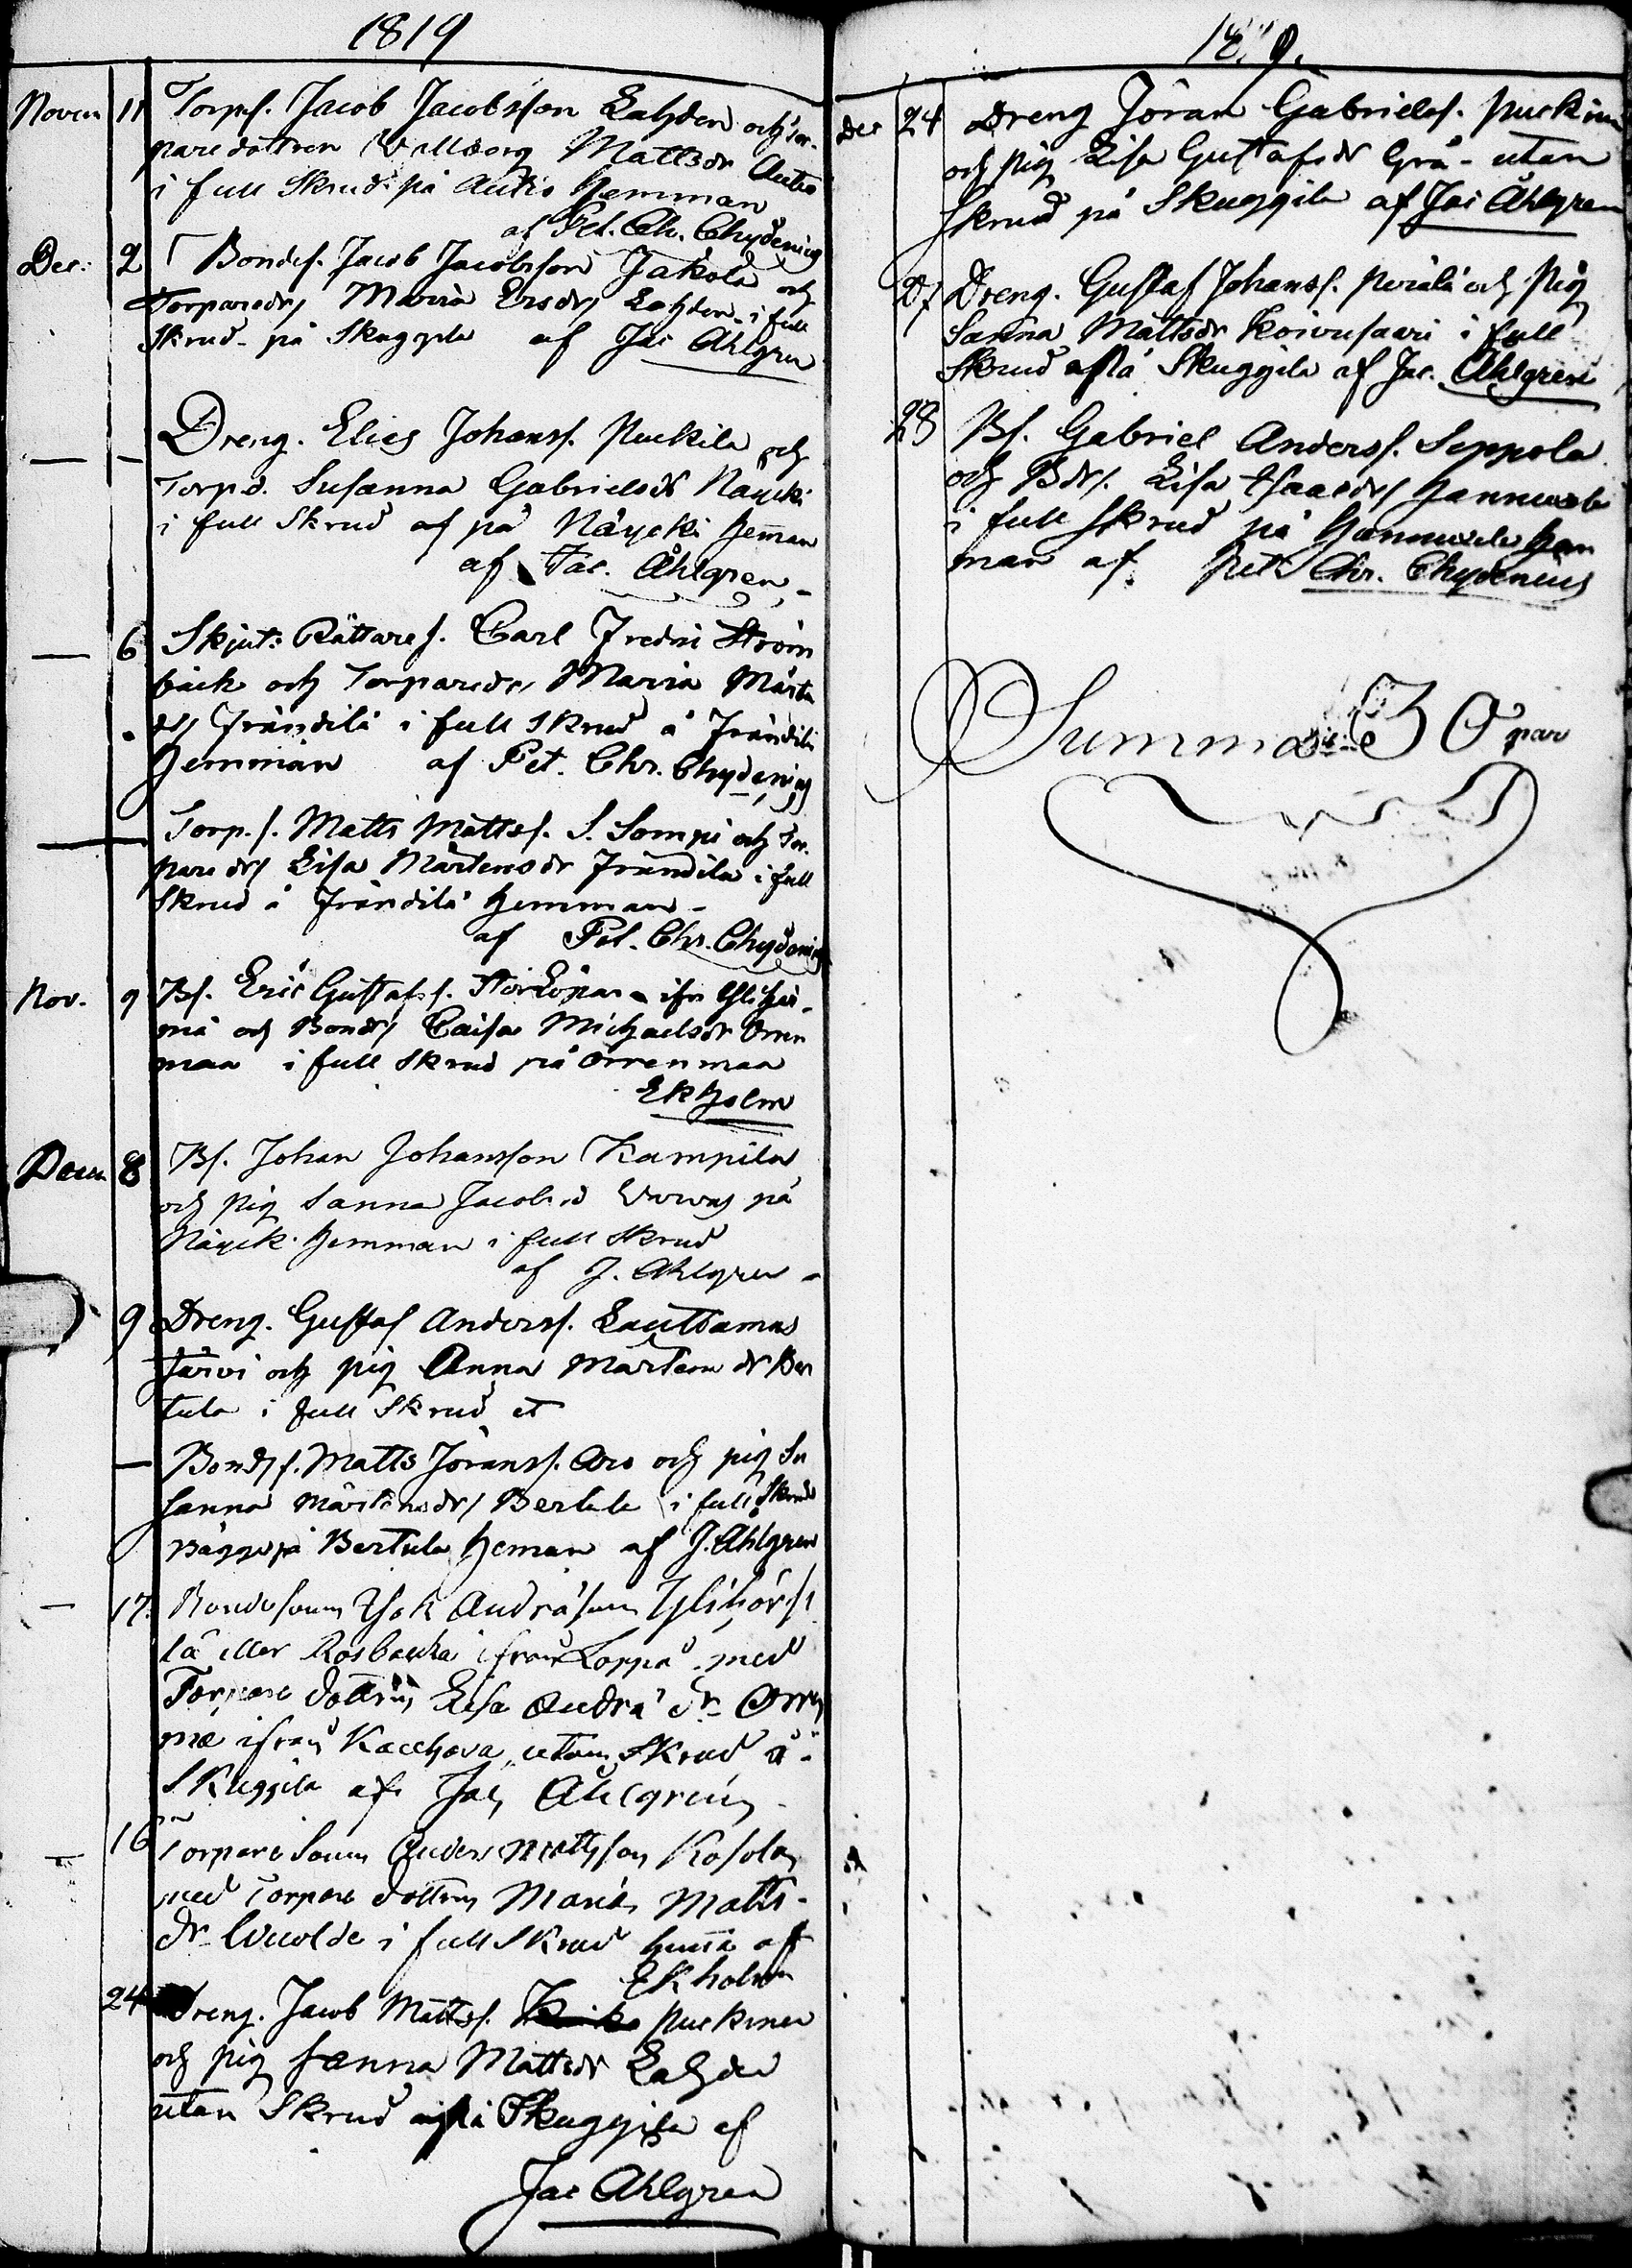 1819
Novem 11 Torps. Jacob Jacobsson Lahden och tor-
paredottren Wallborg Mattsdr Autio
i full Skrud på Autio hemman
af Pet. Chr. Chydenius
Dec: 2 Bondes. Jacob Jacobsson Jakola och
Torparedr Maria Ersdr Lahden i full
Skrud på Skuggila af Jac Åhlgren
— — Dreng. Elies Johanss. Puckila och
Torp.d. Susanna Gabrielsdr Näycki
i full Skrud af på Näycki heman
af Jac. Åhlgren
— 6 Skjuts Rättares. Carl Fredric Ström
bäck och Torparedr Maria Mårtens
dr Frändilä i full Skrud å Frändilä
hemman af Pet. Chr. Chydenius
— Torp.s. Matts Mattss. S. Sompi och Tor-
paredr Lisa Mårtensdr Frändila i full
Skrud å Frändilä hemman
af Pet. Chr. Chydenius
Nov. 9 Bs. Eric Gustafss. ifr Ylihär-
mä och Bondr Caisa Michaelsdr Orren
maa i full Skrud på Orrenmaa
Ekholm
Decem 8 Bs. Johan Johansson Kampila
och pig Sanna Jacobsd på
Näyck. hemman i full Skrud
af J. Åhlgren
9 Dreng. Gustaf Anderss. Lauttamus
Järvi och pig Anna Mårtensdr Ber
tula i full Skrud et
— Bondes. Matts Jöranss. Aro och pig Su
sanna Mårtensdr Bertula i full Skrud
bägge på Bertula heman af J. Åhlgren
— 17. Bondesonen Isak Andrässon
lä eller Rosbacka ifrån Loppå med
Torpare dottren Lisa Andrä dr Orren
ma ifrån Kauhava, utan Skrud å
Skuggila af Jac Åhlgren
— 16 Torpare Sonen Anders Mattsson Kosola
med Torpare dottren Maria Matts-
dr Wuolde i full Skrud hema af
Ekholm
24 Dreng. Jacob Mattss. Puckinen
och pig Sanna Mattsdr Lahden
utan Skrud på Skuggila af
Jac Åhlgren
1819.
dec 24 Dreng Jöran Gabrielss. Puckinen
och pig Lisa Gustafsdr Grå utan
Skrud på Skuggila af Jac Åhlgren
27 Dreng. Gustaf Johanss. Perälä och Pig
Sanna Mattsdr Koivusaari i full
Skrud på Skuggila af Jac. Åhlgren
28 Bs. Gabriel Anderss. Seppola
och Bdr. Lisa Isacsdr Hannuksela
i full Skrud på Hannuksela hem
man af Pet Chr. Chydenius
Summa 30 par